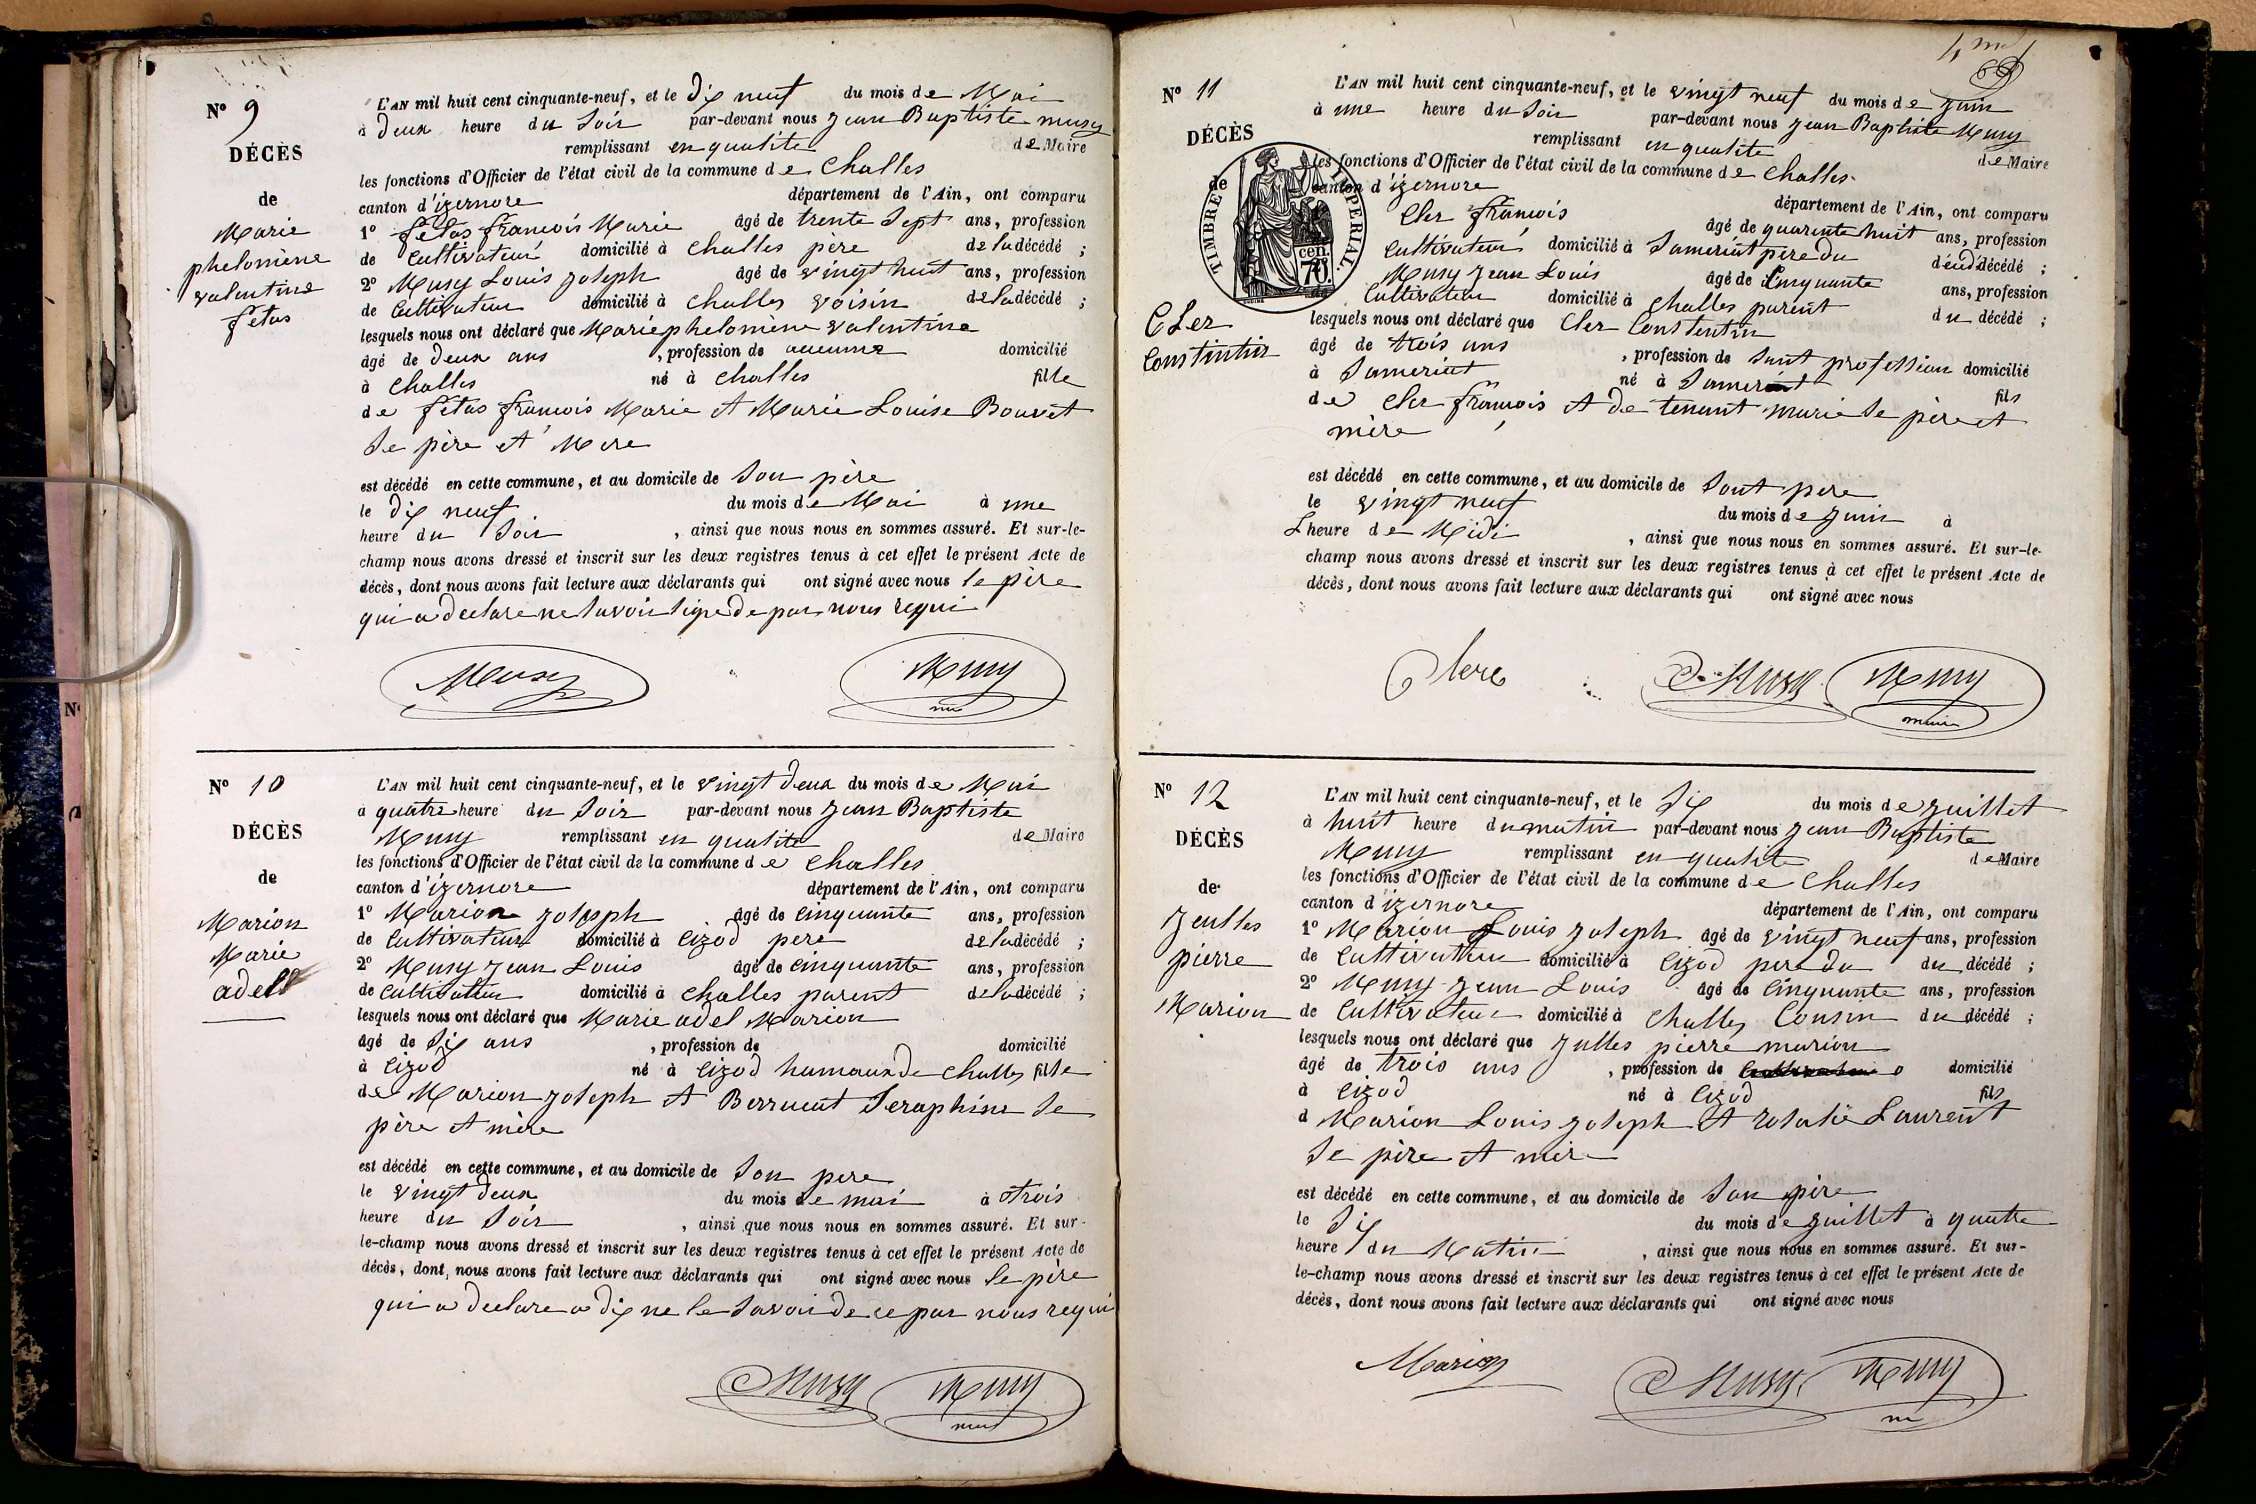 Nº 9
DÉCÈS
de
Marie
phelomène
valentine
fetas
L'AN mil huit cent cinquante-neuf, et le dix neuf du mois de Mai
à deux heure du Soir par-devant nous Jean Baptiste musy
remplissant en qualite de Maire
les fonctions d'Officier de l'état civil de la commune de Challes
canton d'izernore département de l'Ain, ont comparu
1º fetas francois Marie âgé de trente Sept ans, profession
de Cultivateur domicilié à Challes père de la décédé ;
2º Musy Louis Joseph âgé de vingt huit ans, profession
de Cultivateur domicilié à Challes voisin de la décédé ;
lesquels nous ont déclaré que Marie phelomène valentine
âgé de deux ans , profession de aucunne domicilié
à Challes né à Challes fille
de fetas francois Marie et Marie Louise Bouvet
Se père et Mere
est décédé en cette commune, et au domicile de Son père
le dix neuf du mois de Mai à une
heure du Soir , ainsi que nous nous en sommes assuré. Et sur-le-
champ nous avons dressé et inscrit sur les deux registres tenus à cet effet le présent Acte de
décès, dont nous avons fait lecture aux déclarants qui ont signé avec nous le père
qui a declare ne Savoir signe de par nous requi
Musy Musy
Nº 10
DÉCÈS
de
Marion
Marie
adell
L'AN mil huit cent cinquante-neuf, et le vingt deux du mois de Mai
à quatre heure du Soir par-devant nous Jean Baptiste
Musy remplissant en qualite de Maire
les fonctions d'Officier de l'état civil de la commune de Challes
canton d'izernore département de l'Ain, ont comparu
1º Marion Joseph âgé de Cinquante ans, profession
de Cultivateur domicilié à Cizod pere de la décédé ;
2º Musy Jean Louis âgé de Cinquante ans, profession
de Cultivatteur domicilié à Challes parent de la décédé ;
lesquels nous ont déclaré que Marie adel Marion
âgé de Six ans , profession de domicilié
à Cizod né à Cizod humaux de Challes fille
de Marion Joseph et Berruent Seraphine Se
père et mère
est décédé en cette commune, et au domicile de Son pere
le vingt deux du mois de mai à trois
heure du Soir , ainsi que nous nous en sommes assuré. Et sur-
le-champ nous avons dressé et inscrit sur les deux registres tenus à cet effet le présent Acte de
décès, dont nous avons fait lecture aux déclarants qui ont signé avec nous le père
qui a declare a dix ne le Savoir de ce par nous requi
Musy Musy
Nº 11
DÉCÈS
de
TIMBRE IMPERIAL.
70 cen.
Cler
Constintin
L'AN mil huit cent cinquante-neuf, et le vingt neuf du mois de Juin
à une heure du Soir par-devant nous Jean Baptiste Musy
remplissant en qualite de Maire
les fonctions d'Officier de l'état civil de la commune de Challes
canton d'izernore département de l'Ain, ont comparu
Cler francois âgé de quarente huit ans, profession
Cultivateur domicilié à Sameriat pere du décédé ;
Musy Jean Louis âgé de Cinquante ans, profession
de Cultivateur domicilié à Challes parent du décédé ;
lesquels nous ont déclaré que Cler Constentin
âgé de trois ans , profession de Sant profession domicilié
à Sameriat né à Sameriat fils
de Cler francois et de tenant marie Se père et
mère
est décédé en cette commune, et au domicile de Sont pere
le vingt neuf du mois de Juin à
L heure de Midi , ainsi que nous nous en sommes assuré. Et sur-le-
champ nous avons dressé et inscrit sur les deux registres tenus à cet effet le présent Acte de
décès, dont nous avons fait lecture aux déclarants qui ont signé avec nous
Clere Musy Musy
maire
Nº 12
DÉCÈS
de
Jeulles
pierre
Marion
L'AN mil huit cent cinquante-neuf, et le Six du mois de Juillet
à huit heure du matin par-devant nous Jean Baptiste
Musy remplissant en qualite de Maire
les fonctions d'Officier de l'état civil de la commune de Challes
canton d'izernore département de l'Ain, ont comparu
1º Marion Louis Joseph âgé de vingt neuf ans, profession
de Cultivatteur domicilié à Cizod pere du du décédé ;
2º Musy Jean Louis âgé de Cinquante ans, profession
de Cultivateur domicilié à Challes Cousin du décédé ;
lesquels nous ont déclaré que Julles pierre marion
âgé de trois ans , profession de domicilié
à Cizod né à Cizod fils
d Marion Louis Joseph et rosalie Laurent
Se père et mere
est décédé en cette commune, et au domicile de Son père
le Six du mois de Juillet à quatte
heure du Matin , ainsi que nous nous en sommes assuré. Et sur-
le-champ nous avons dressé et inscrit sur les deux registres tenus à cet effet le présent Acte de
décès, dont nous avons fait lecture aux déclarants qui ont signé avec nous
Marion Musy Musy